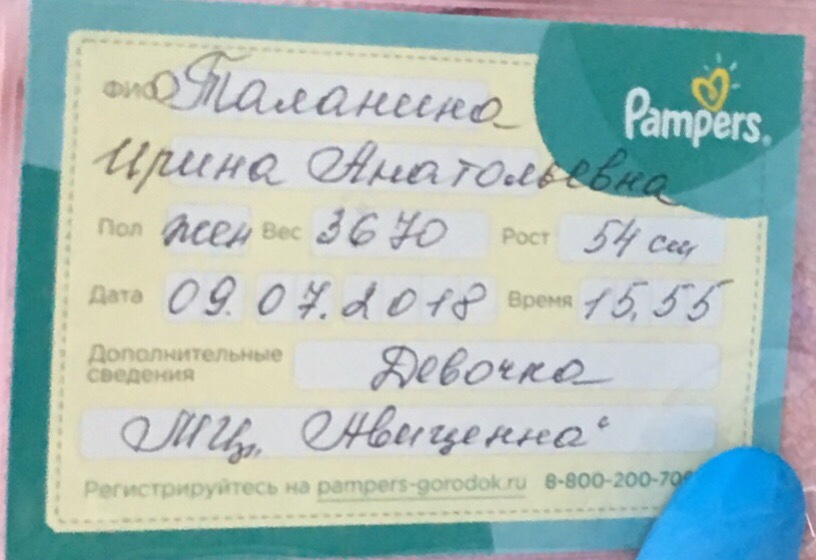 Pampers.
ФИО Таланина
Ирина Анатольевна
Пол жен Вес 3670 Рост 54 см
Дата 09.07.2018 Время 15,55
Дополнительные сведения Девочка
МЦ „Авиценна“
Регистрируйтесь на pampers-gorodok.ru 8-800-200-70